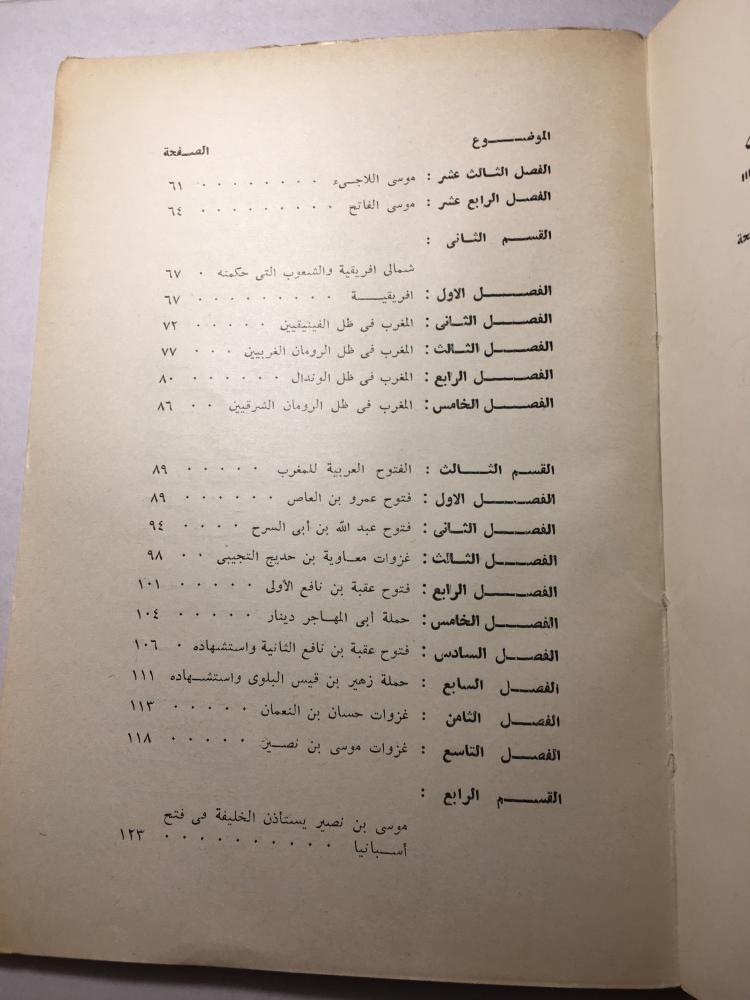 الموضوع الصفحة
الفصل الثالث عشر : موسى اللاجىء . . . . . . . . ٦١
الفصل الرابع عشر : موسى الفاتح . . . . . . . . . ٦٤
القسم الثانى :
شمالى افريقية والشعوب التى حكمته . ٦٧
الفصل الاول : افريقية . . . . . . . . . ٦٧
الفصل الثانى : المغرب فى ظل الفينيقيين . . . . . ٧٢
الفصل الثالث : المغرب فى ظل الرومان الغربيين . . . ٧٧
الفصل الرابع : المغرب فى ظل الوندال . . . . . . ٨٠
الفصل الخامس : المغرب فى ظل الرومان الشرقيين . . ٨٦
القسم الثالث : الفتوح العربية للمغرب . . . . . ٨٩
الفصل الاول : فتوح عمرو بن العاص . . . . . . ٨٩
الفصل الثانى : فتوح عبد الله بن أبى السرح . . . . ٩٤
الفصل الثالث : غزوات معاوية بن حديج التجيبى . . ٩٨
الفصل الرابع : فتوح عقبة بن نافع الأولى . . . . . ١٠١
الفصل الخامس : حملة أبى المهاجر دينار . . . . . ١٠٤
الفصل السادس : فتوح عقبة بن نافع الثانية واستشهاده . ١٠٦
الفصل السابع : حملة زهير بن قيس البلوى واستشهاده ١١١
الفصل الثامن : غزوات حسان بن النعمان . . . . . ١١٣
الفصل التاسع : غزوات موسى بن نصير . . . . . ١١٨
القسم الرابع :
موسى بن نصير يستأذن الخليفة فى فتح
أسبانيا . . . . . . . . . . ١٢٣